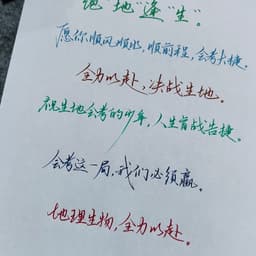 绝"地"逢"生"。
愿你顺风顺水，顺前程，会考大捷。
全力以赴，决战生地。
祝生地会考的少年，人生首战告捷。
会考这一局，我们必须赢。
地理生物，全力以赴。